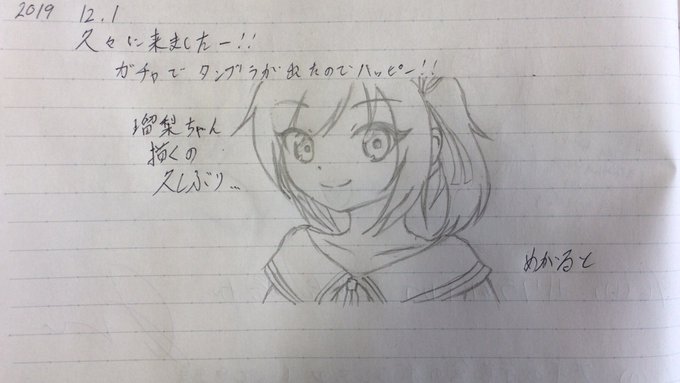 2019 12.1
久々に来ましたー!!
ガチャでタンブラが出たのでハッピー!!
瑠梨ちゃん
描くの
久しぶり...
めがると